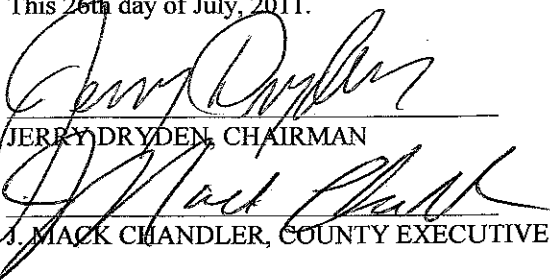 This 26th day of July, 2011.
Jerry Dryden
JERRY DRYDEN, CHAIRMAN
J Mack Chandler
J. MACK CHANDLER, COUNTY EXECUTIVE